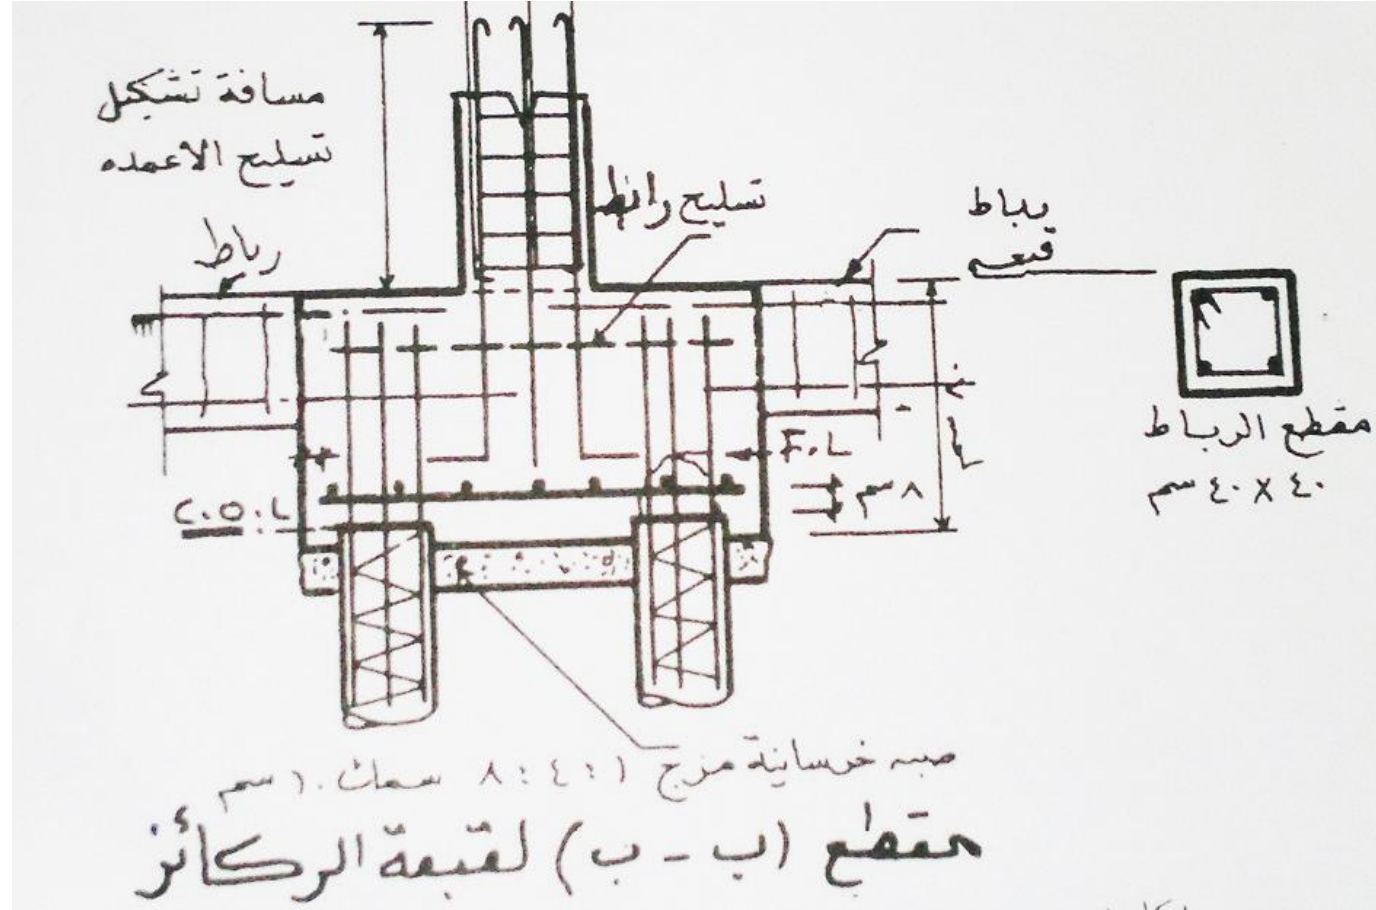 مسافة تشكيل
تسليح الاعمده
رباط
تسليح رابط
رباط
قبعه
F.L
٨ سم
C.O.L
مقطع الرباط
٤٠ x ٤٠ سم
صبه خرسانية مزج ١ : ٤ : ٨ سمك ١٠ سم
مقطع (ب - ب) لقبعة الركائز